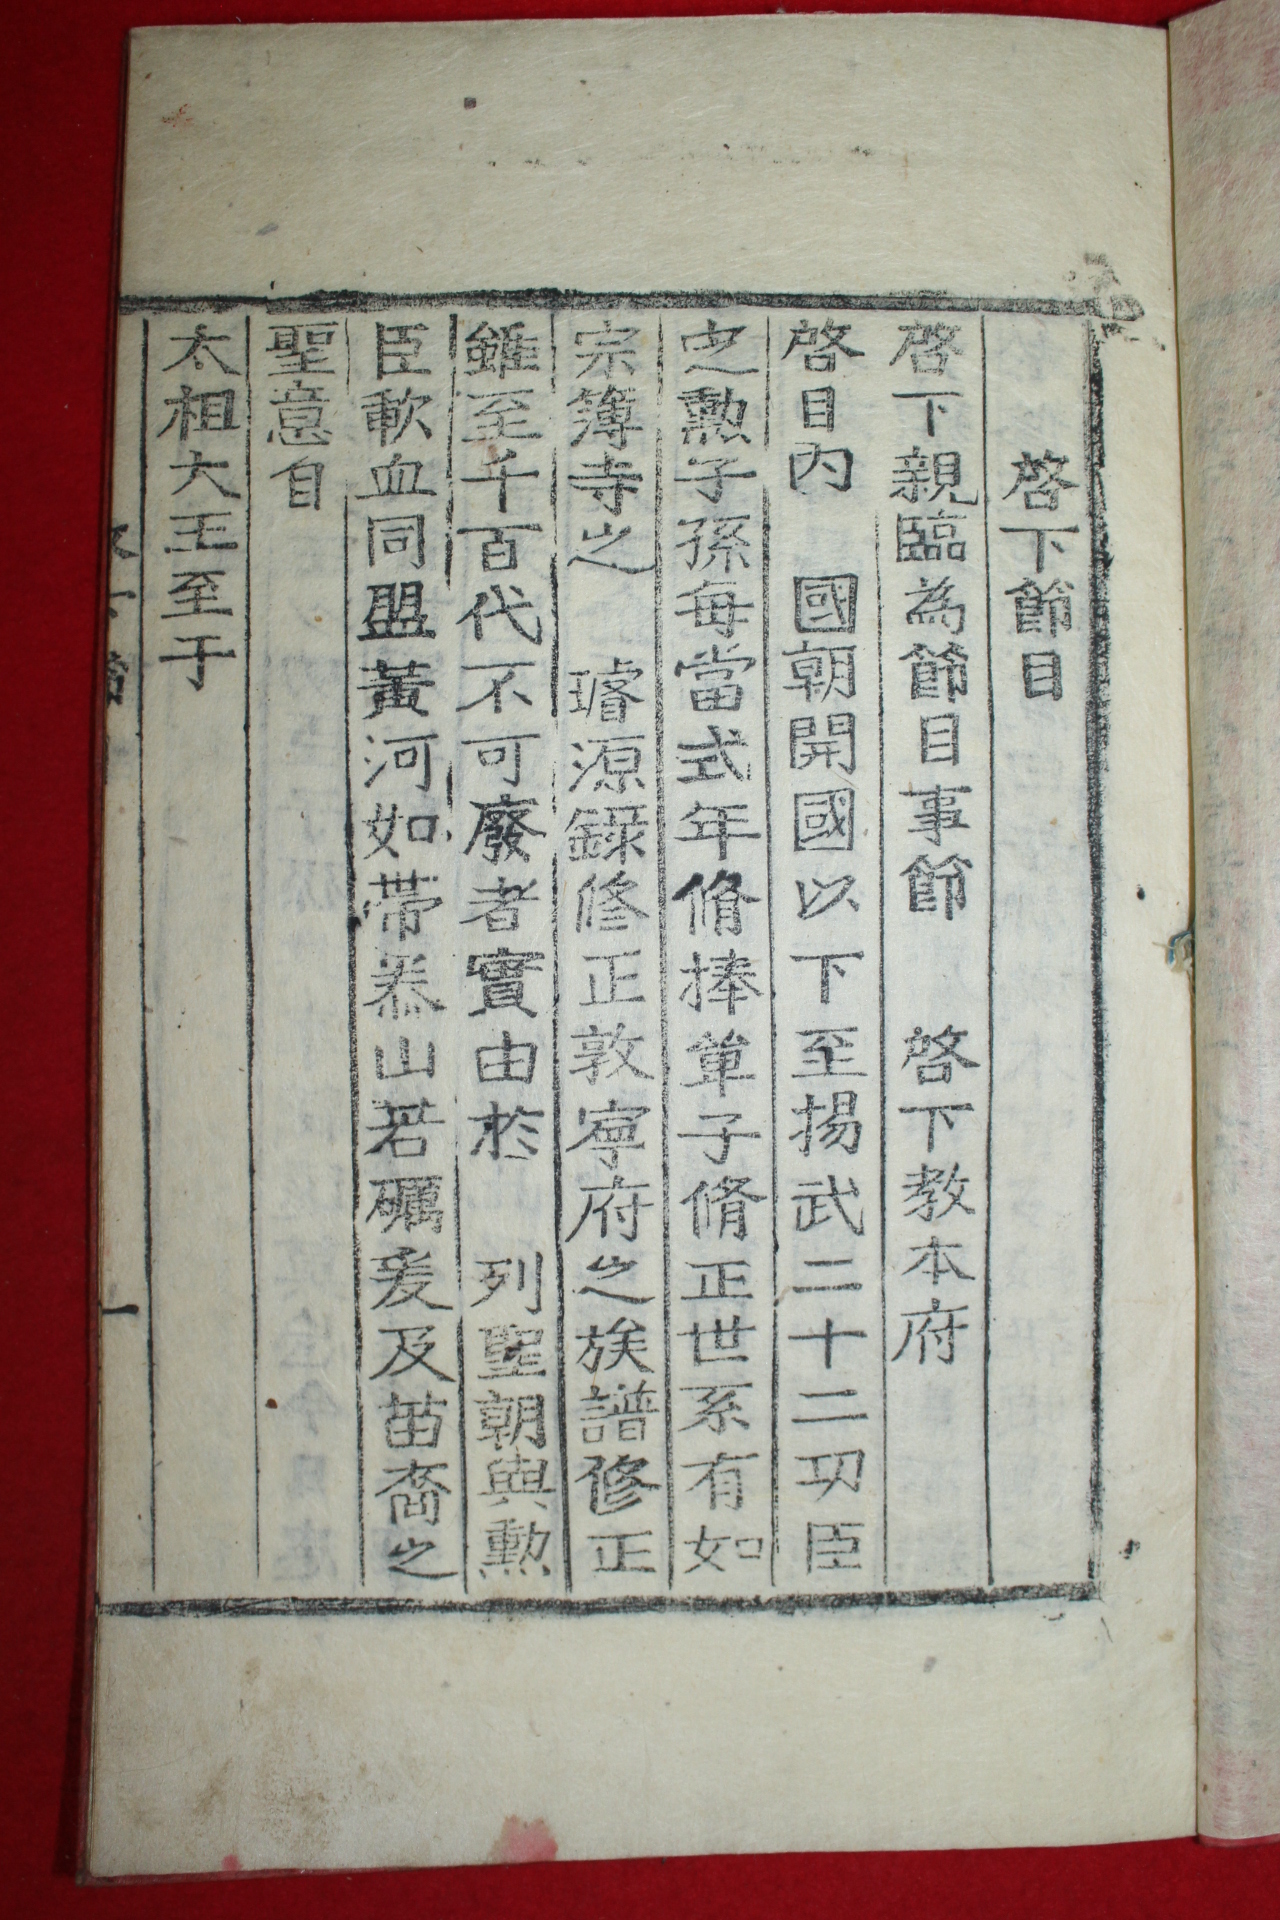 啓下節目
啓下親臨為節目事節 啓下教本府
啓目內 國朝開國以下至揚武二十二功臣
之勳子孫每當式年脩捧單子脩正世系有如
宗簿寺之 璿源錄修正敦寧府之族譜修正
雖至千百代不可廢者實由於 列聖朝與勳
臣歃血同盟黃河如帶泰山若礪爰及苗裔之
聖意自
太祖大王至于
一